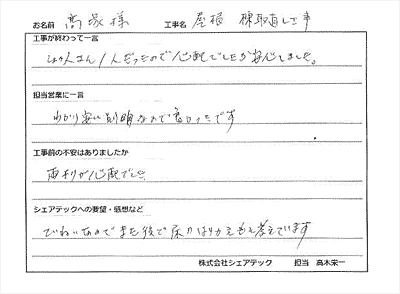 お名前 高塚 様 工事名 屋根 棟取直し工事
工事が終わって一言
しょく人さん1人だったので心配でしたが安心しました。
担当営業に一言
わかり安い説明なので良かったです
工事前の不安はありましたか
雨もりが心配でした
シェアテックへの要望・感想など
ていねいなのでまた後で床のはりかえも考えています
株式会社シェアテック 担当 高木栄一